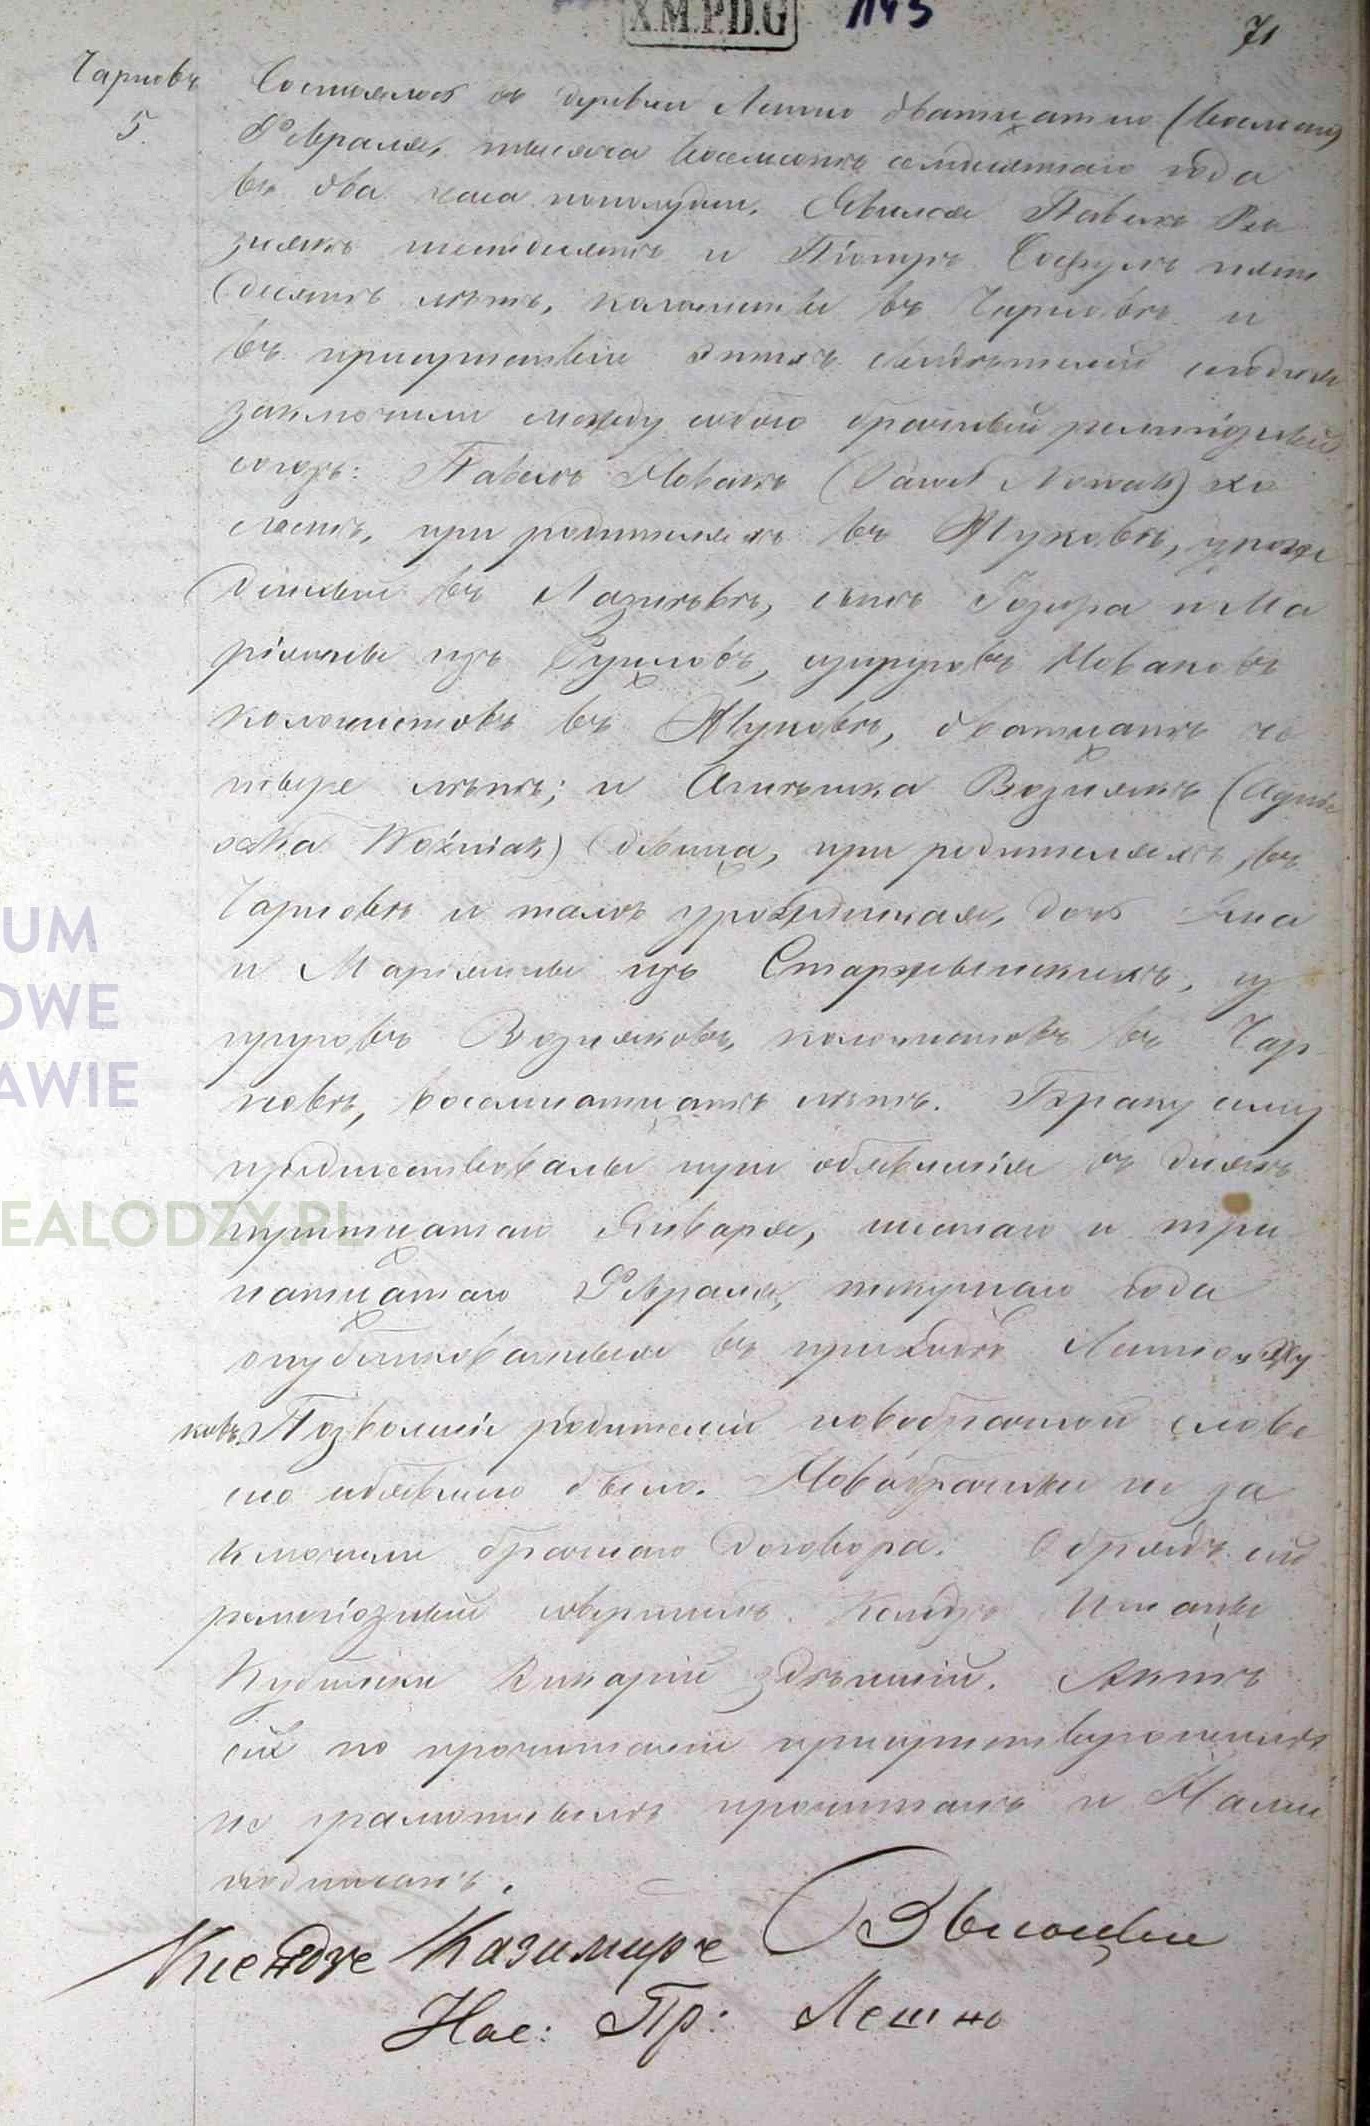 X.M.P.D.G 1145
71
Чарновъ
5.
Состоялось въ деревни Лешно дватцатаго (восьмаго)
Февраля, тысяча восемсотъ семдесятаго года
въ два часа пополудни. Явился Павелъ Воз
знякъ шестьдесятъ и Піотръ пять
десятъ лѣтъ, колонисты въ Чарновѣ и
въ присутствіи этихъ свидѣтелей сегодня
заключили между собою брачный религіозный
союзъ: Павелъ Новакъ (Paweł Nowak) хо
лостъ, при родителяхъ въ Жуковѣ, урож
денный въ Лазнѣвѣ, сынъ Іозефа и Ма
ріанны изъ супруговъ Новаковъ
колонистовъ въ Жуковѣ, дватцать че
тыре лѣтъ; и Агнѣшка Вознякъ (Agnie
szka Woźniak) дѣвица, при родителяхъ въ
Чарновѣ и тамъ урожденная, дочь Яна
и Маріянны изъ су
пруговъ Возняковъ, колонистовъ въ Чар
новѣ, восемнатцать лѣтъ. Браку сему
предшествовалы три объявленія въ дняхъ
тритцатаго Января, шестаго и три
натцатаго Февраля, текущаго года
опубликованныя въ приходѣ Лешно и Жу
ковъ. Позволеніе родителей новобрачной слове
сно объявлено было. Новобрачные не за
ключили брачнаго договора. Обрядъ сей
религіозный совершилъ Ксендзъ Игнацы
Викарій здѣшній. Актъ
сей по прочитаніи присутствующимъ
не грамотнымъ прочитанъ и Нами
подписанъ.
Ксендзъ Казимиръ
Нас: Пр: Лешно
UM
OWE
AWIE
EALODZY.PL